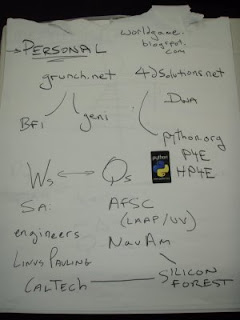 → PERSONAL
worldgame.
blogspot.
com
grunch.net
4dsolutions.net
BFI
geni
DWA
python.org
python
P4E
HP4E
Ws ↔ Qs
SA:
AFSC
(LAAP/UV)
engineers
NavAm
LINUS PAULING
SILICON
FOREST
CALTECH